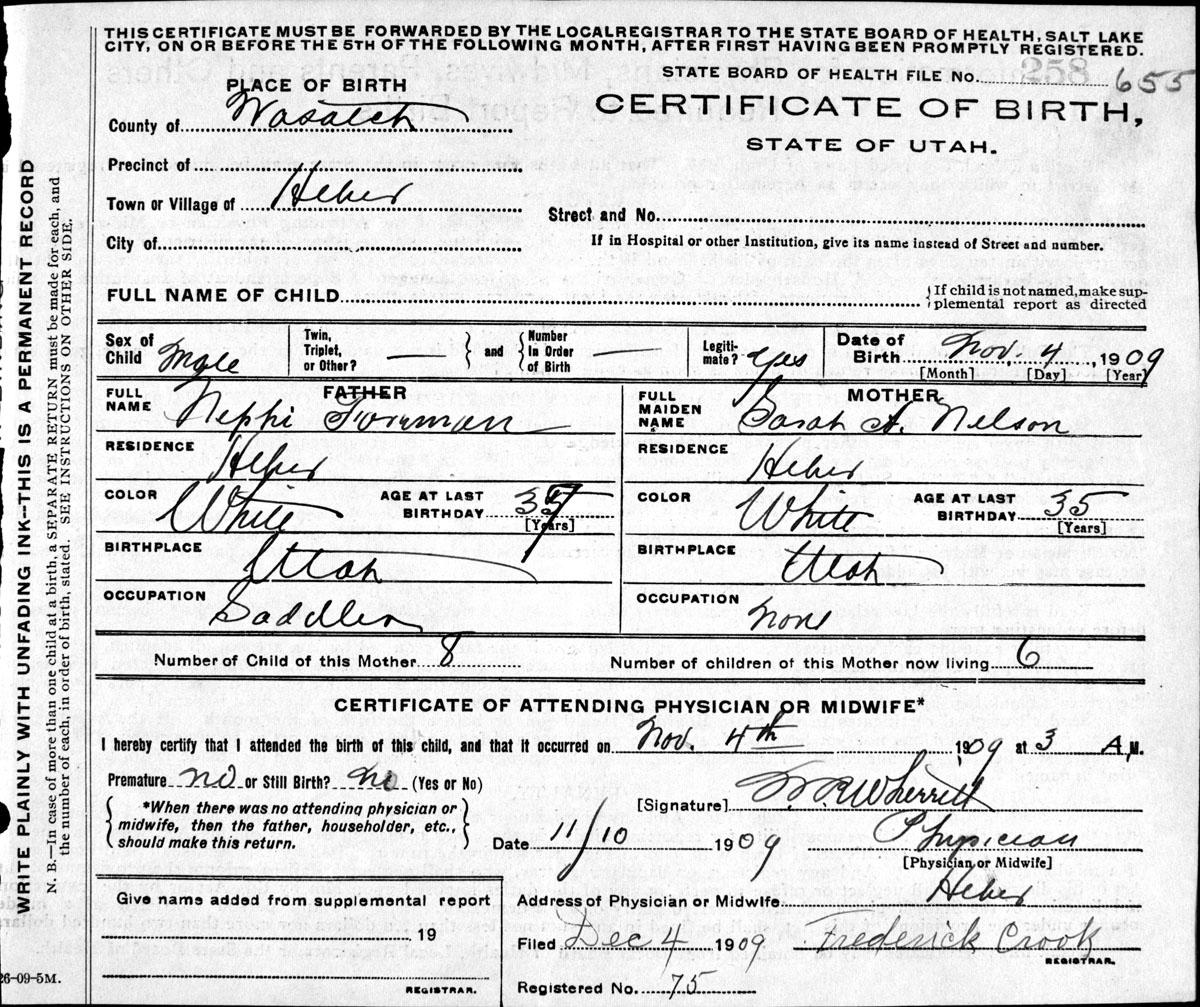 THIS CERTIFICATE MUST BE FORWARDED BY THE LOCAL REGISTRAR TO THE STATE BOARD OF HEALTH, SALT LAKE
CITY, ON OR BEFORE THE 5TH OF THE FOLLOWING MONTH, AFTER FIRST HAVING BEEN PROMPTLY REGISTERED.
STATE BOARD OF HEALTH FILE No. 258 655
PLACE OF BIRTH
CERTIFICATE OF BIRTH,
STATE OF UTAH.
County of Wasatch
Precinct of
Town or Village of Heber
Street and No.
City of
If in Hospital or other Institution, give its name instead of Street and number.
FULL NAME OF CHILD
If child is not named, make sup-
plemental report as directed
Sex of Child Male
Twin, Triplet, or Other? —
and
Number In Order of Birth —
Legiti-mate? yes
Date of Birth Nov. 4 1909
[Month] [Day] [Year]
FATHER
FULL NAME Nephi Forrman
RESIDENCE Heber
COLOR White AGE AT LAST BIRTHDAY 37
[Years]
BIRTHPLACE Utah
OCCUPATION Saddler
MOTHER
FULL MAIDEN NAME Sarah A. Nelson
RESIDENCE Heber
COLOR White AGE AT LAST BIRTHDAY 35
[Years]
BIRTHPLACE Utah
OCCUPATION None
Number of Child of this Mother 8 Number of children of this Mother now living 6
CERTIFICATE OF ATTENDING PHYSICIAN OR MIDWIFE*
I hereby certify that I attended the birth of this child, and that it occurred on Nov. 4th 1909 at 3 A, M.
Premature no or Still Birth? no (Yes or No)
*When there was no attending physician or
midwife, then the father, householder, etc.,
should make this return.
[Signature] W R Wherritt
Date 11/10 1909 Physician
[Physician or Midwife]
Address of Physician or Midwife Heber
Give name added from supplemental report
19
REGISTRAR.
Filed Dec 4 1909 Frederick Crook
REGISTRAR.
Registered No. 75
26-09-5M.
WRITE PLAINLY WITH UNFADING INK--THIS IS A PERMANENT RECORD
N. B.—In case of more than one child at a birth, a SEPARATE RETURN must be made for each, and
the number of each, in order of birth, stated. SEE INSTRUCTIONS ON OTHER SIDE.